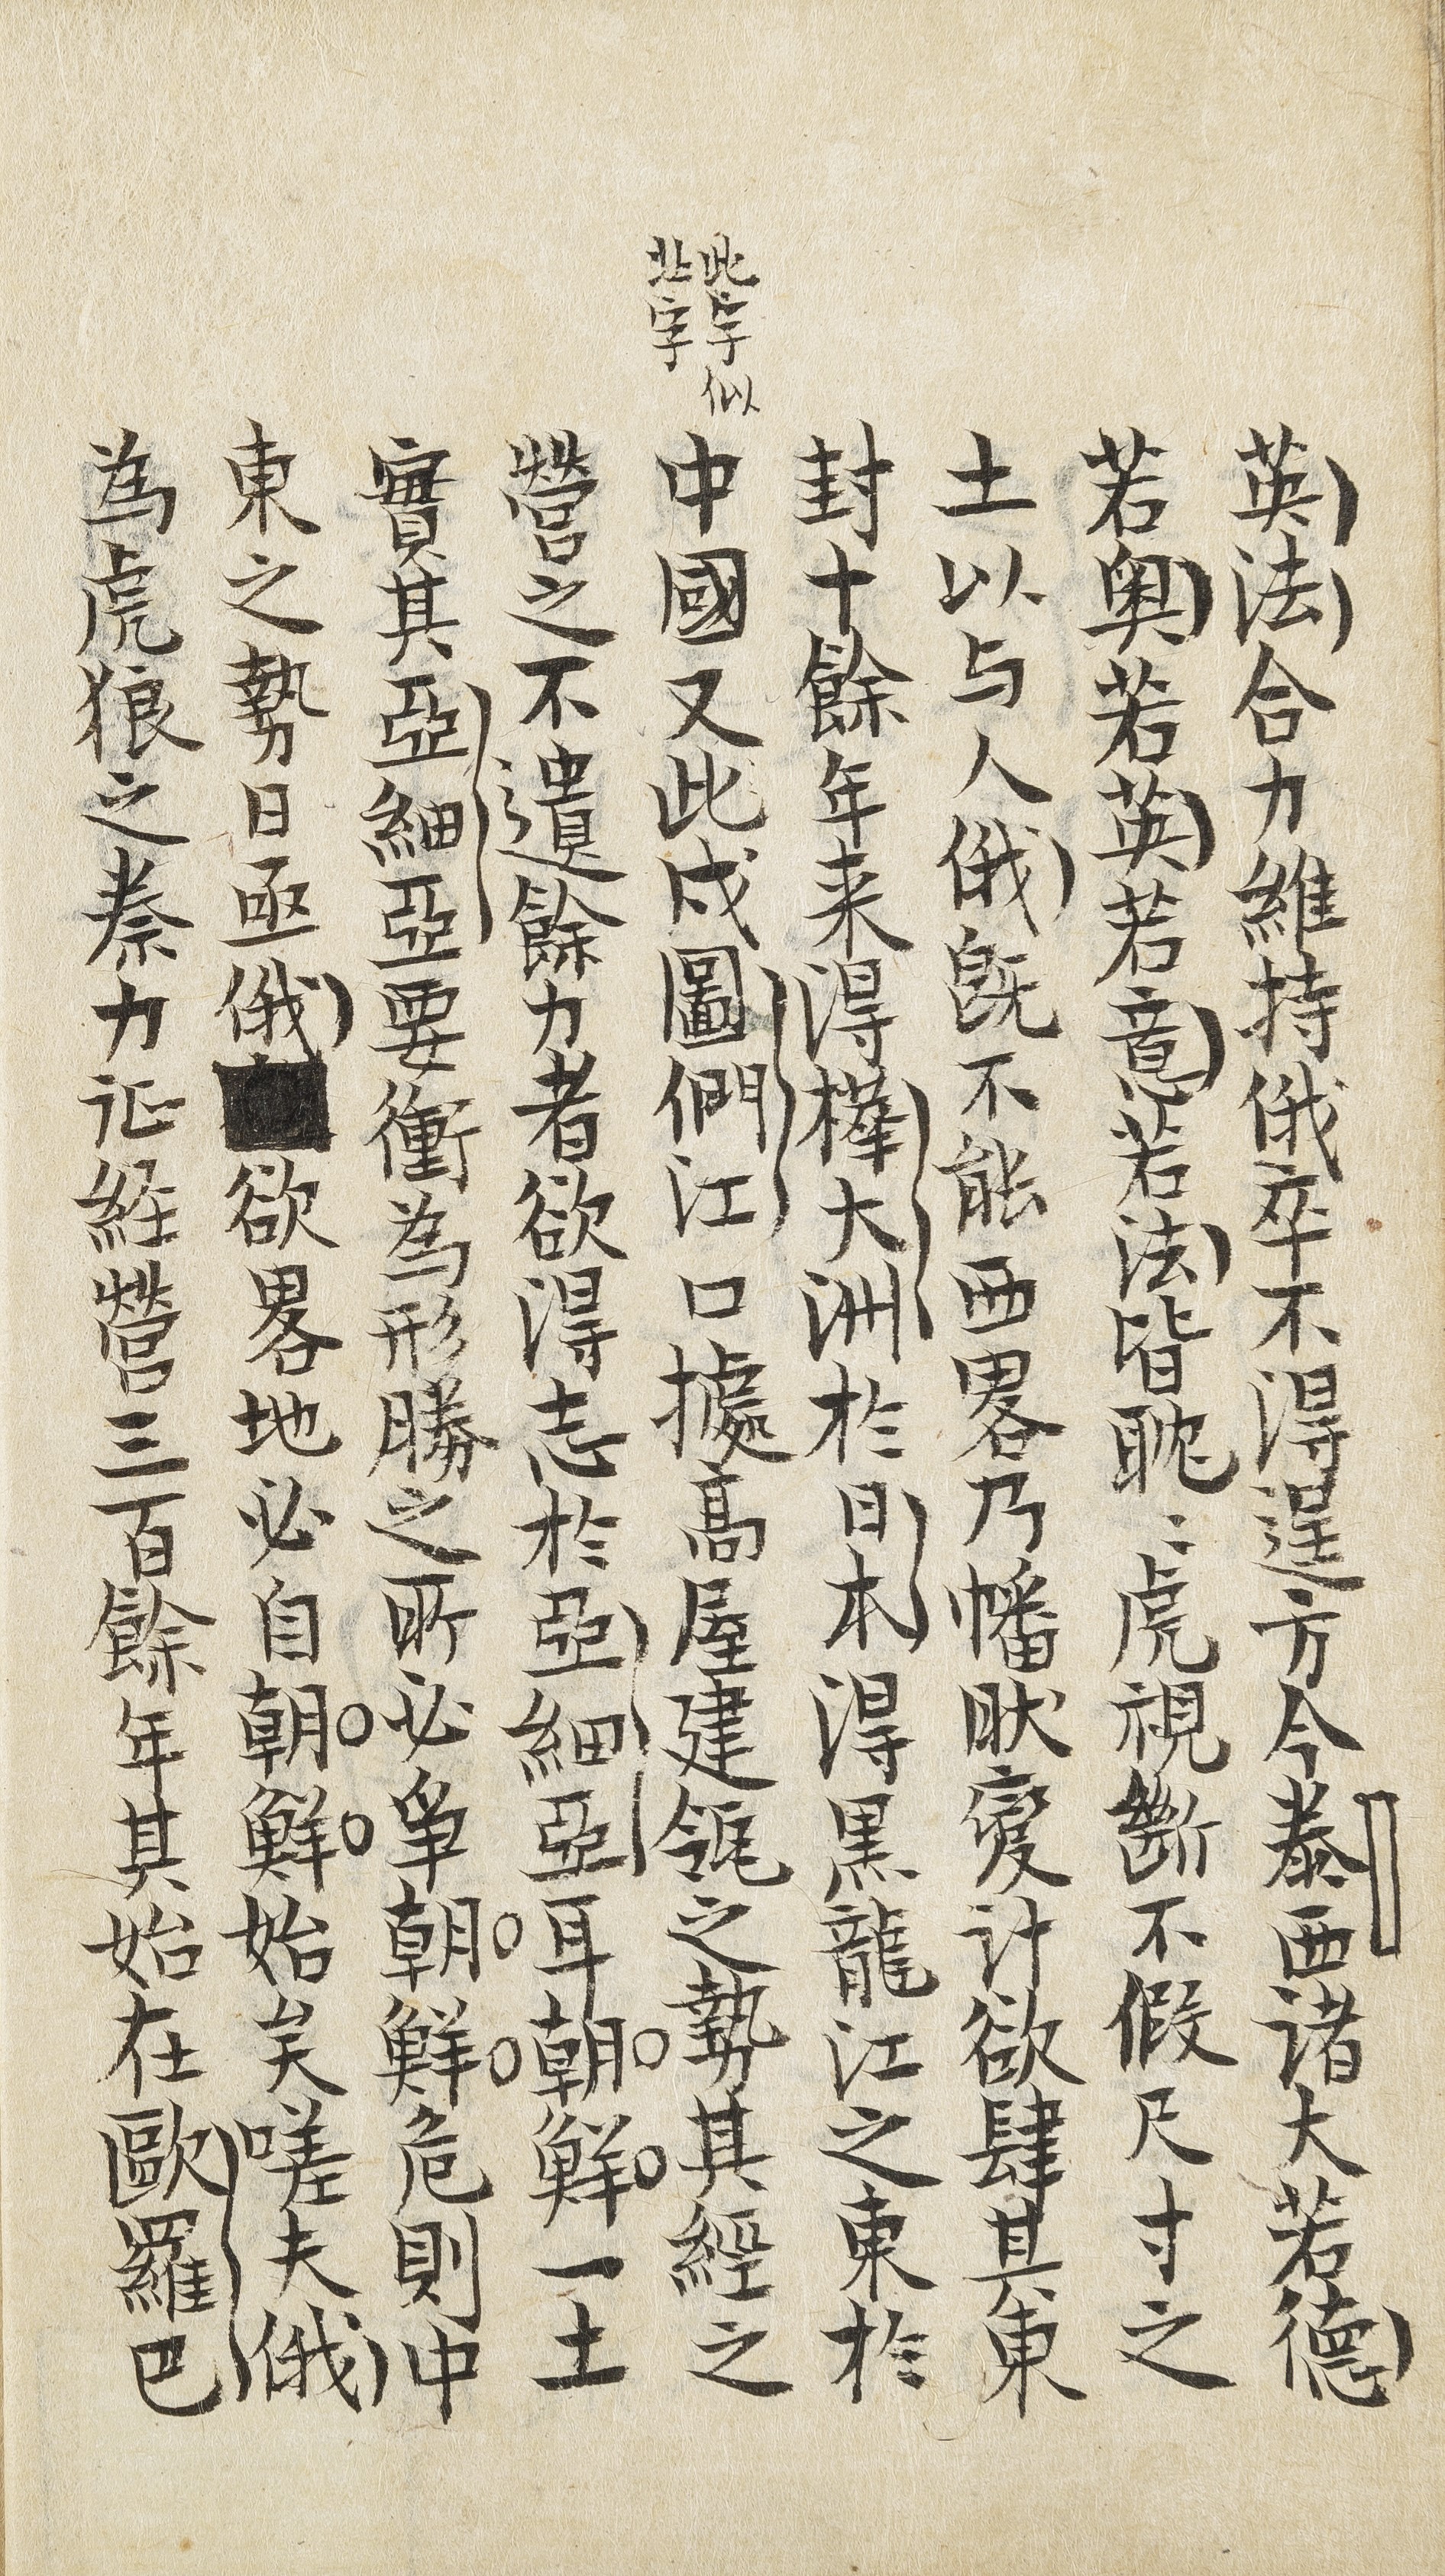 英法合力維持俄卒不得逞方今泰西諸大若德
若奧若英若意若法皆耽〻虎視斷不假尺寸之
土以与人俄既不能西畧乃幡眹變计欲肆其東
封十餘年来得樺大洲於日本得黒龍江之東於
此字似
北字
中國又此戍圖們江口據高屋建瓴之勢其經之
營之不遺餘力者欲得志於亞細亞耳朝鮮一土
實其亞細亞要衝為形勝之所必爭朝鮮危則中
東之勢日亟俄欲畧地必自朝鮮始矣嗟夫俄
為虎狼之秦力征経營三百餘年其始在歐羅巴